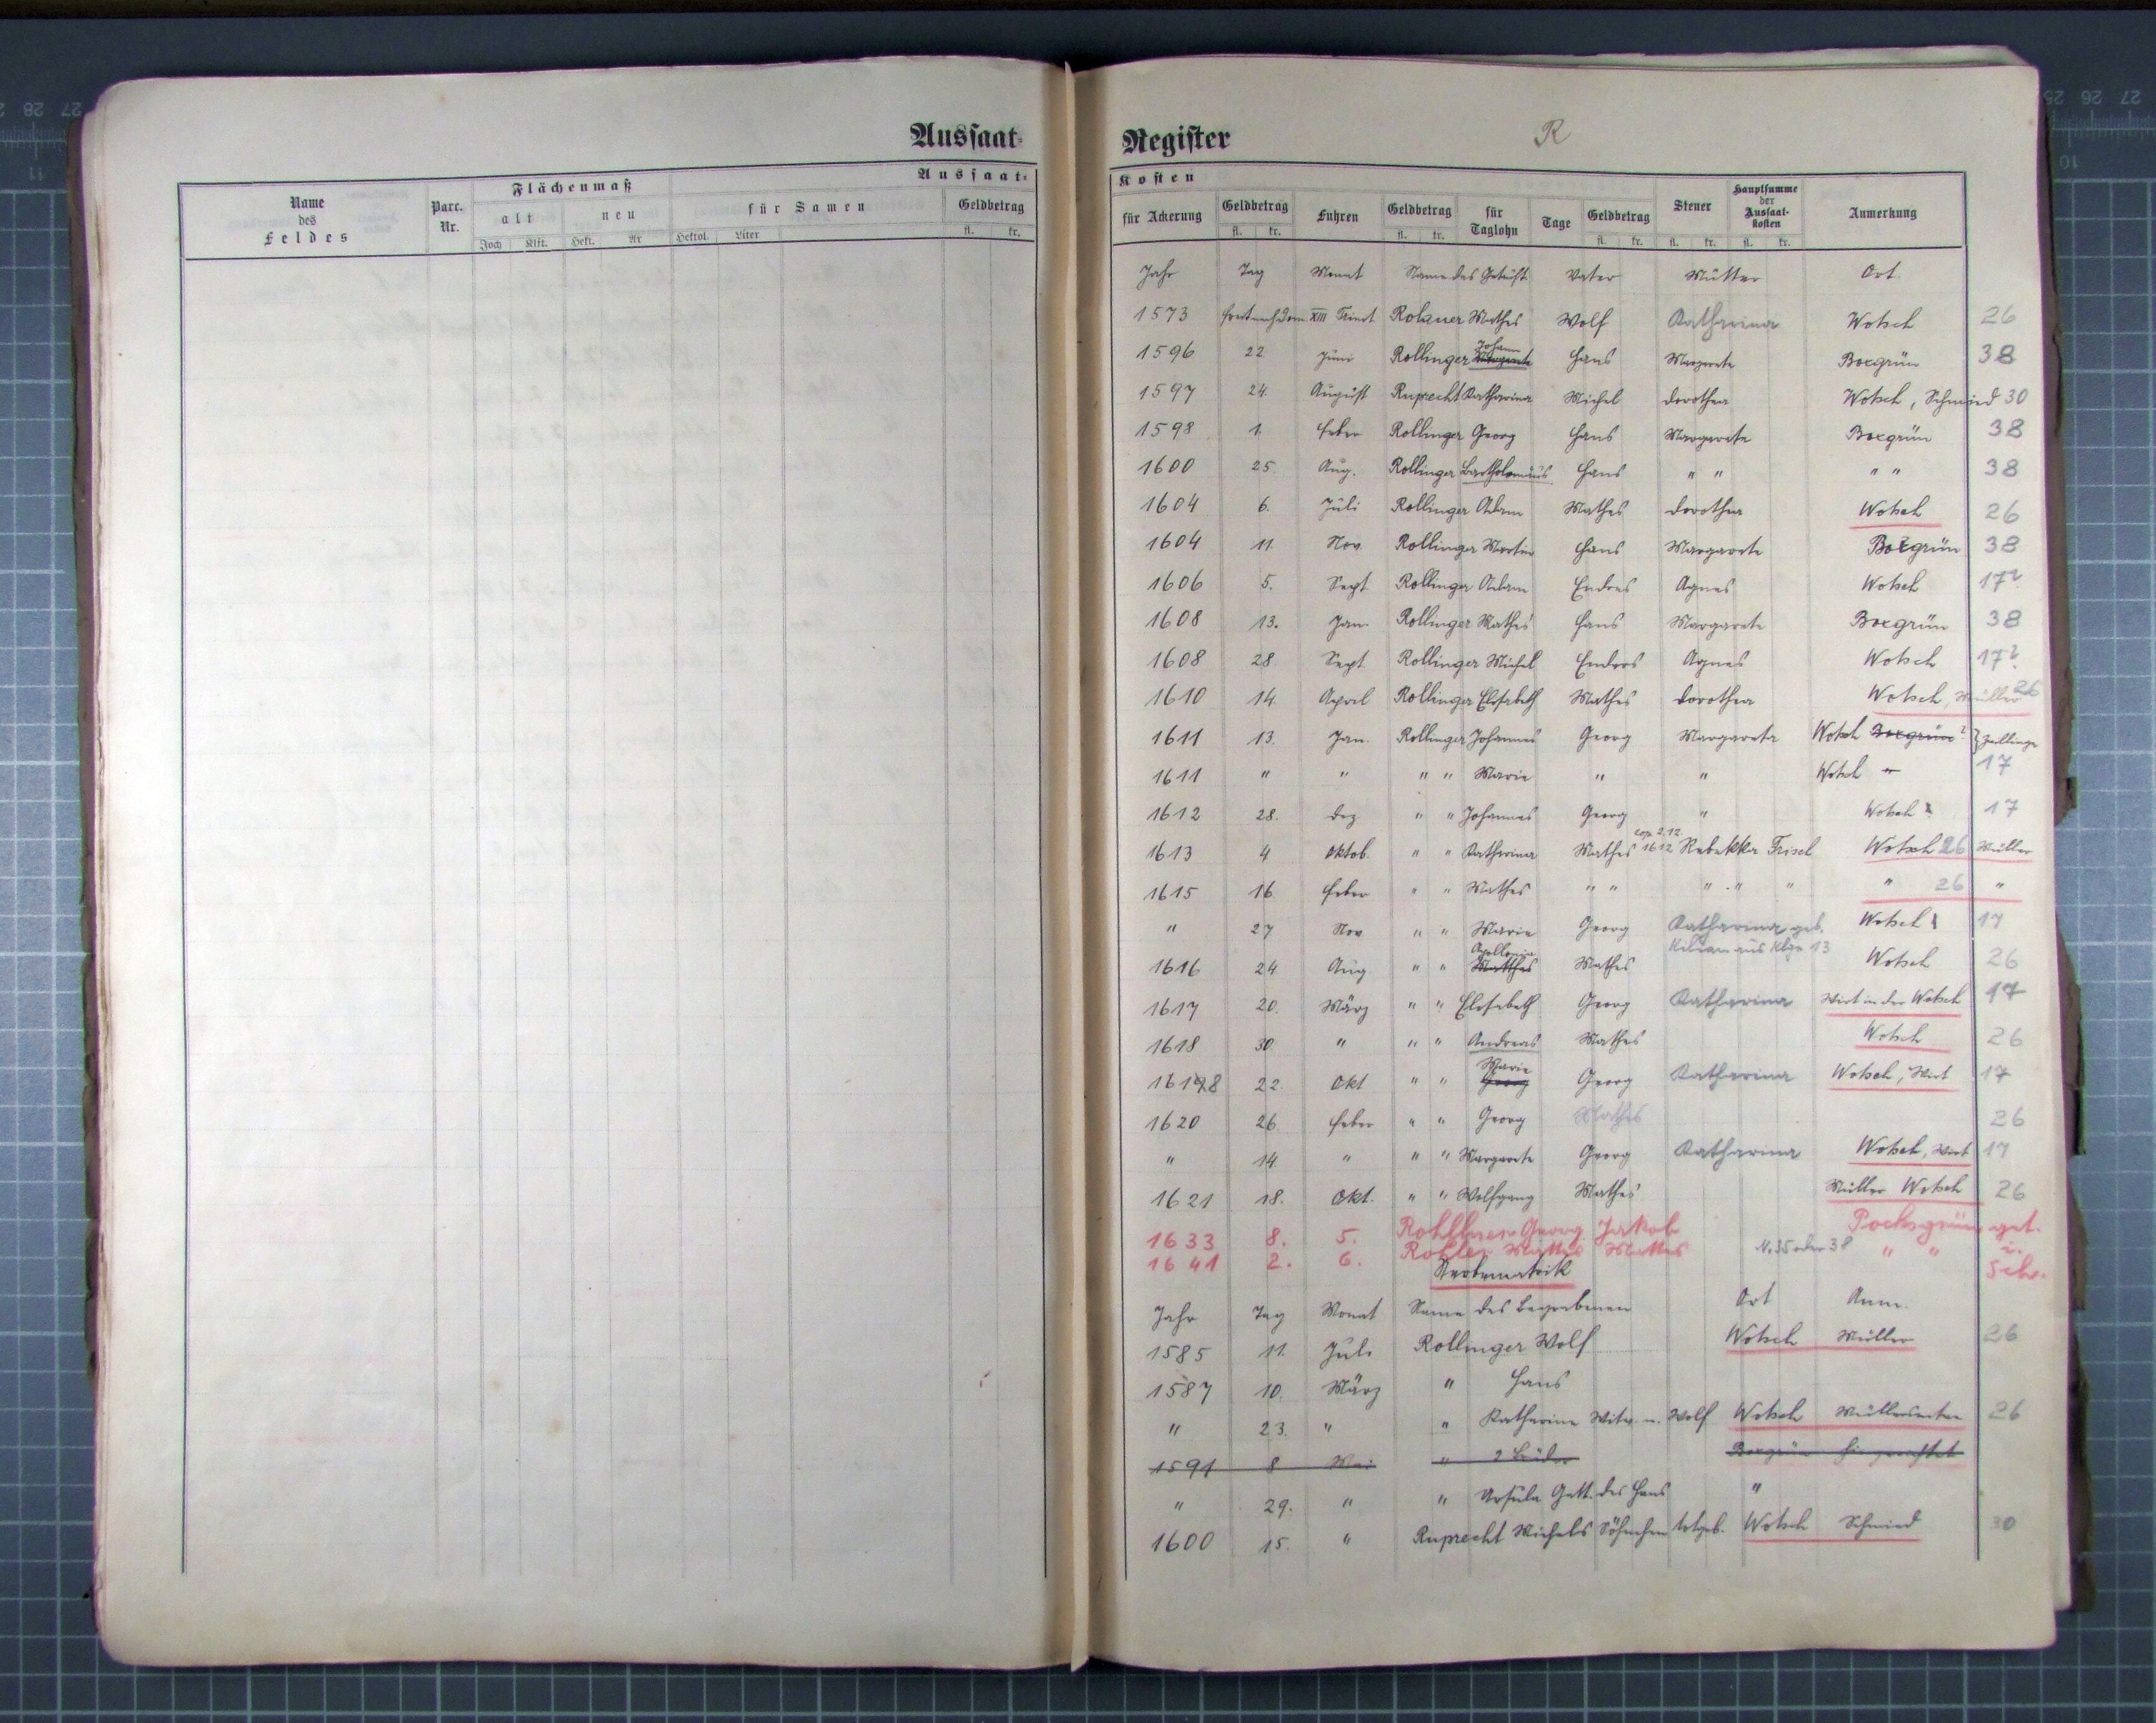 Aussaat-
Name des Feldes
Parc. Nr.
Flächenmaß
alt
neu
Joch Klft. Hekt. Ar
Aussaat-
für Samen
Hektol. Liter
Geldbetrag
fl. kr.
Register
R
Kosten
für Ackerung
Geldbetrag
fl. kr.
Fuhren
Geldbetrag
fl. kr.
für Taglohn
Tage
Geldbetrag
fl. kr.
Steuer
fl. kr.
Hauptsumme der Aussaat-kosten
fl. kr.
Anmerkung
Jahr Tag Monat Name des Getauft. Vater Mutter Ort
1573 XIII Trinit Mathes Wolf Katharina Wotsch 26
1596 22 Juni Rollinger Johann Hans Margarete Boxgrün 38
1597 24. August Ruprecht Katharina Michel Dorothea Wotsch, Schmied 30
1598 1. Feber Rollinger Georg Hans Margarete Boxgrün 38
1600 25. Aug. Rollinger Bartholomäus Hans " " " " 38
1604 6. Juli Rollinger Adam Mathes Dorothea Wotsch 26
1604 11. Nov. Rollinger Martin Hans Margarete Boxgrün 38
1606 5. Sept. Rollinger Adam Endres Agnes Wotsch 17?
1608 13. Jan. Rollinger Mathes Hans Margarete Boxgrün 38
1608 28. Sept. Rollinger Michel Endres Agnes Wotsch 17?
1610 14. April Rollinger Elisabeth Mathes Dorothea Wotsch, Müller 26
1611 13. Jan. Rollinger Johannes Georg Margareta Wotsch Boxgrün? } Zwillinge
1611 " " " " Marie " " Wotsch " 17
1612 28. Dez " " Johannes Georg " Wotsch 17
1613 4 Oktob. " " Katharina Mathes cop. 2.12 1612 Rebekka Frisch Wotsch 26 Müller
1615 16. Feber " " Mathes " " " " " " 26 "
" 27 Nov " " Marie Georg Katharina geb. Wotsch 17
Kilian aus Klgr 13
1616 24 Aug " " Apollonia Matthes Mathes Wotsch 26
1617 20. März " " Elisabeth Georg Katharina Wirt in der Wotsch 17
1618 30. " " " Andreas Mathes Wotsch 26
1618 22. Okt " " Marie Georg Georg Katharina Wotsch, Wirt 17
1620 26 Feber " " Georg Mathes 26
" 14. " " " Margarete Georg Katharina Wotsch, Wirt 17
1621 18. Okt. " " Wolfgang Mathes Müller Wotsch 26
1633 8. 5. Georg Jakob Pocksgrün get.
1641 2. 6. Rohler Mattes Mattes N. 35 oder 38 " " i. Sch.
Sterbematrik
Jahr Tag Monat Name des Begrabenen Ort Anm.
1585 11. Juli Rollinger Wolf Wotsch Müller 26
1587 10. März " Hans
" 23. " " Katharina Witw. n. Wolf Wotsch 26
1591 8 Mai " 2 Brüder Boxgrün hingerichtet
" 29. " " Ursula Gatt. des Hans "
1600 15. " Ruprecht Michels Söhnchen totgeb. Wotsch Schmied 30